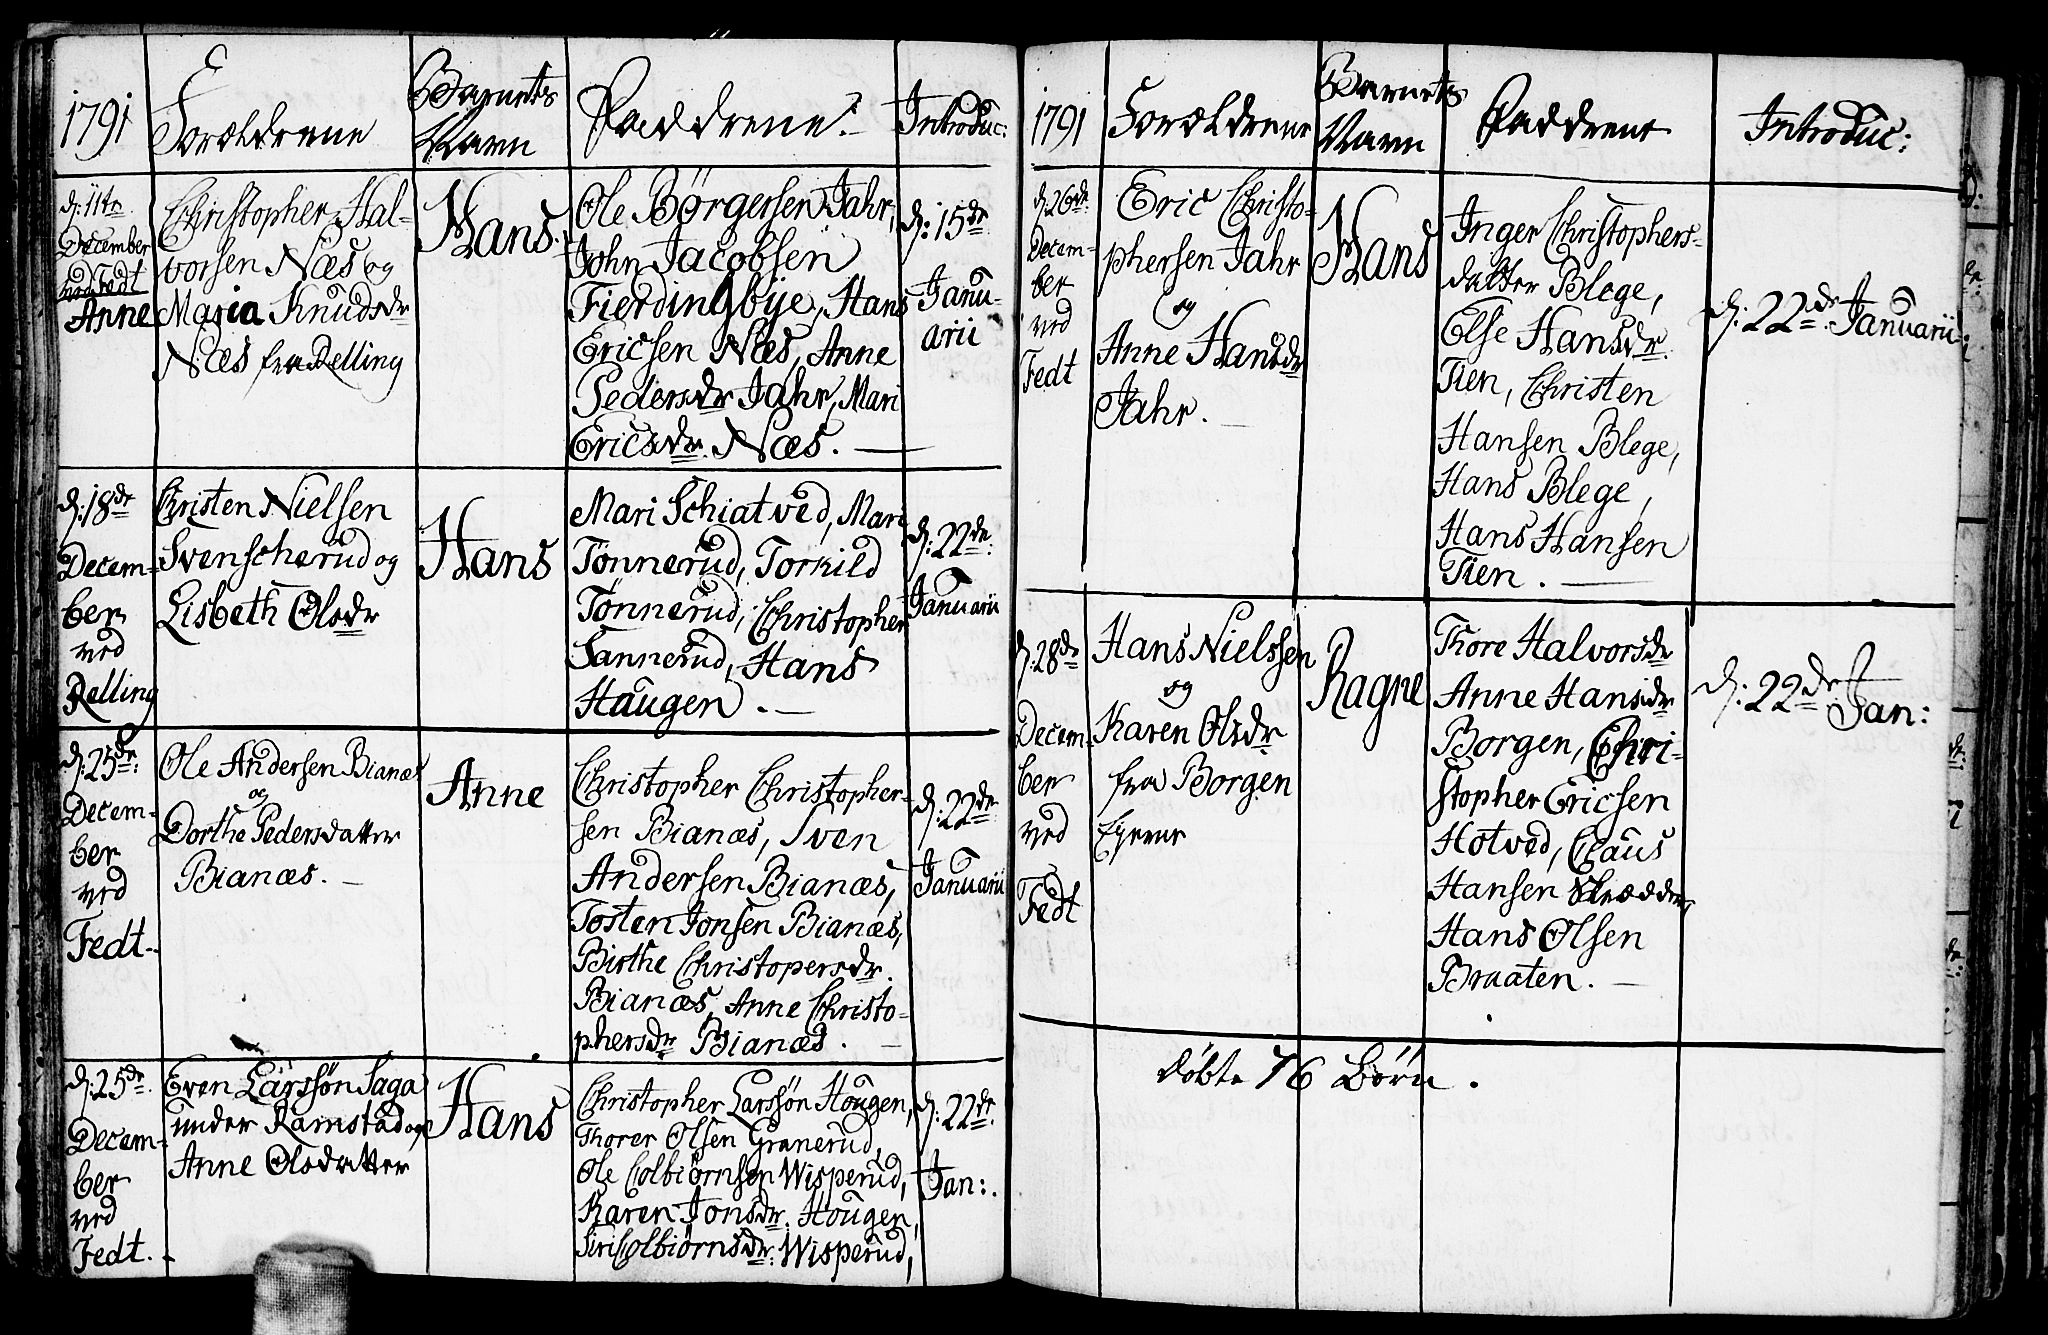 1791
Forældrene
Barnets
Navn
Faddrene.
Introduc:
d: 11te
December
ved Fedt
Anne
Christopher Hal-
vorsen Næs og
Maria Knudsdr
Næs fra Relling
Hans.
Ole Børgersen Jahr,
John Jacobsen
Fierdingbÿe, Hans
Ericsen Næs, Anne
Pedersdr Jahr, Mari
Ericsdr. Næs. —
d: 15de
Janu-
arii
d: 18de
Decem-
ber
ved
Relling
Christen Nielsen
Svenscherud og
Lisbeth Olsdr
Hans
Mari Schiatved, Mari
Tønnerud, Torkild
Tønnerud, Christopher
Sannerud, Hans
Haugen. —
d: 22de:
Januarii
d: 25de:
Decem-
ber
ved
Fedt.
Ole Andersen Bianæs
og
Dorthe Pedersdatter
Bianæs. —
Anne
Christopher Christopher-
sen Bianæs, Sven
Andersen Bianæs,
Tosten Jonsen Bianæs,
Birthe Christopersdr.
Bianæs, Anne Christo-
phersdr Bianæs. —
d: 22de
Januarii
d: 25de.
Decem-
ber
ved
Fedt. -
Even Larssøn Saga
under Ramstad og
Anne Olsdatter
Hans
Christopher Larssøn Hougen,
Thorer Olsen Granerud,
Ole Colbiørnsen Wisperud,
Karen Jonsdr. Hougen,
Siri Colbiørnsdr: Wisperud,
d: 22de.
Jan:.
1791
Forældrene
Barnets
Navn
Faddrene
Introduc:
d: 26de
Decem-
ber
ved
Fedt
Eric Christo-
phersen Jahr
og
Anne Hansdr
Jahr. —
Hans
Inger Christophers-
datter Blege,
Else Hansdr.
Tien, Christen
Hansen Blege,
Hans Blege,
Hans Hansen
Tien. —
d: 22de. Januarii
d: 28de
Decem-
ber
ved
Fedt
Hans Nielssen
og
Karen Olsdr
fra Borgen
Eyerne
Ragne
Thore Halvorsdr
Anne Hansdr
Borgen, Chri-
stopher Ericsen
Hotved, Claus
Hansen Skrædder,
Hans Olsen
Braaten. —
d: 22de
Jan:
døbte 76 Børn.